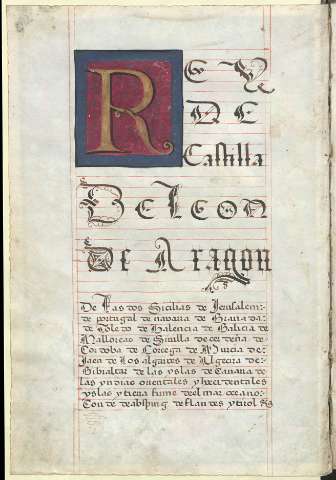 REY
DE
Castilla
De Leon
De Aragon
De las dos Sicilias de Jerusalem:
de portugal de navarra de Granada:
de Toledo de Valencia de Galicia de
Mallorcas de Sivilla de cerdeña. de
Cordoba de Corcega de Murcia de:
Jaen de Los algarves de Algecira de:
Gibraltar de las yslas de Canaria de
las yndias orientales y hocidentales
yslas y tierra firme del mar oceano:
Con de de abspurg de flandes y tirol &a